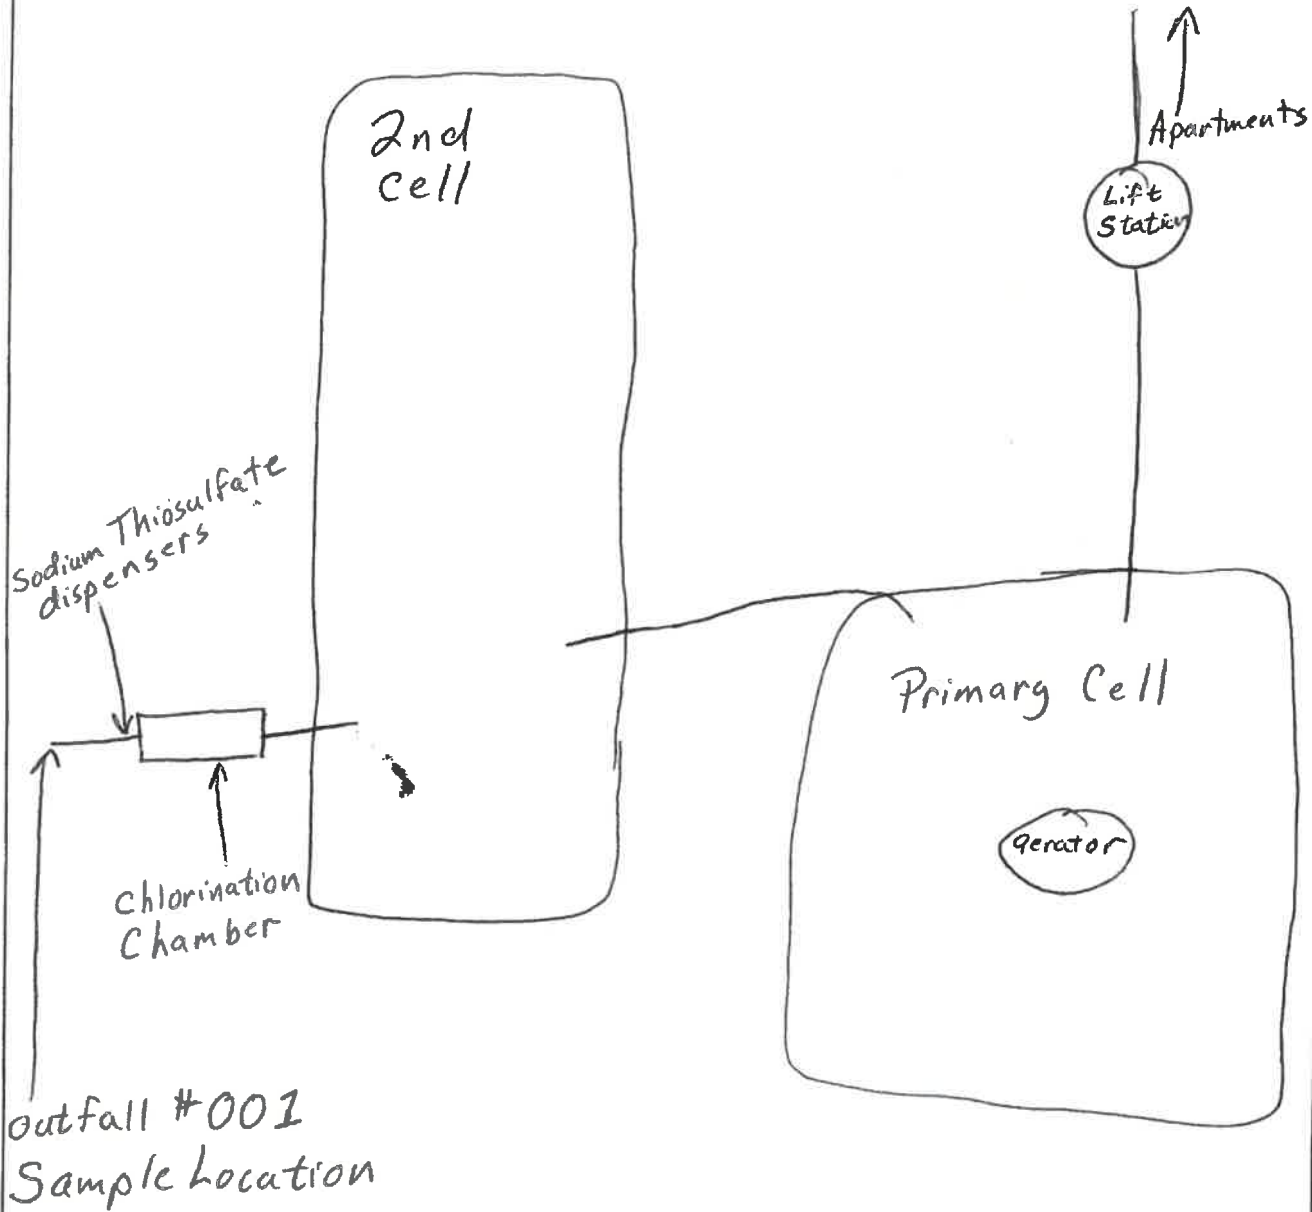 2nd
Cell
Apartments
Lift
Station
Sodium Thiosulfate
dispensers
Primary Cell
aerator
Chlorination
Chamber
outfall #001
Sample Location